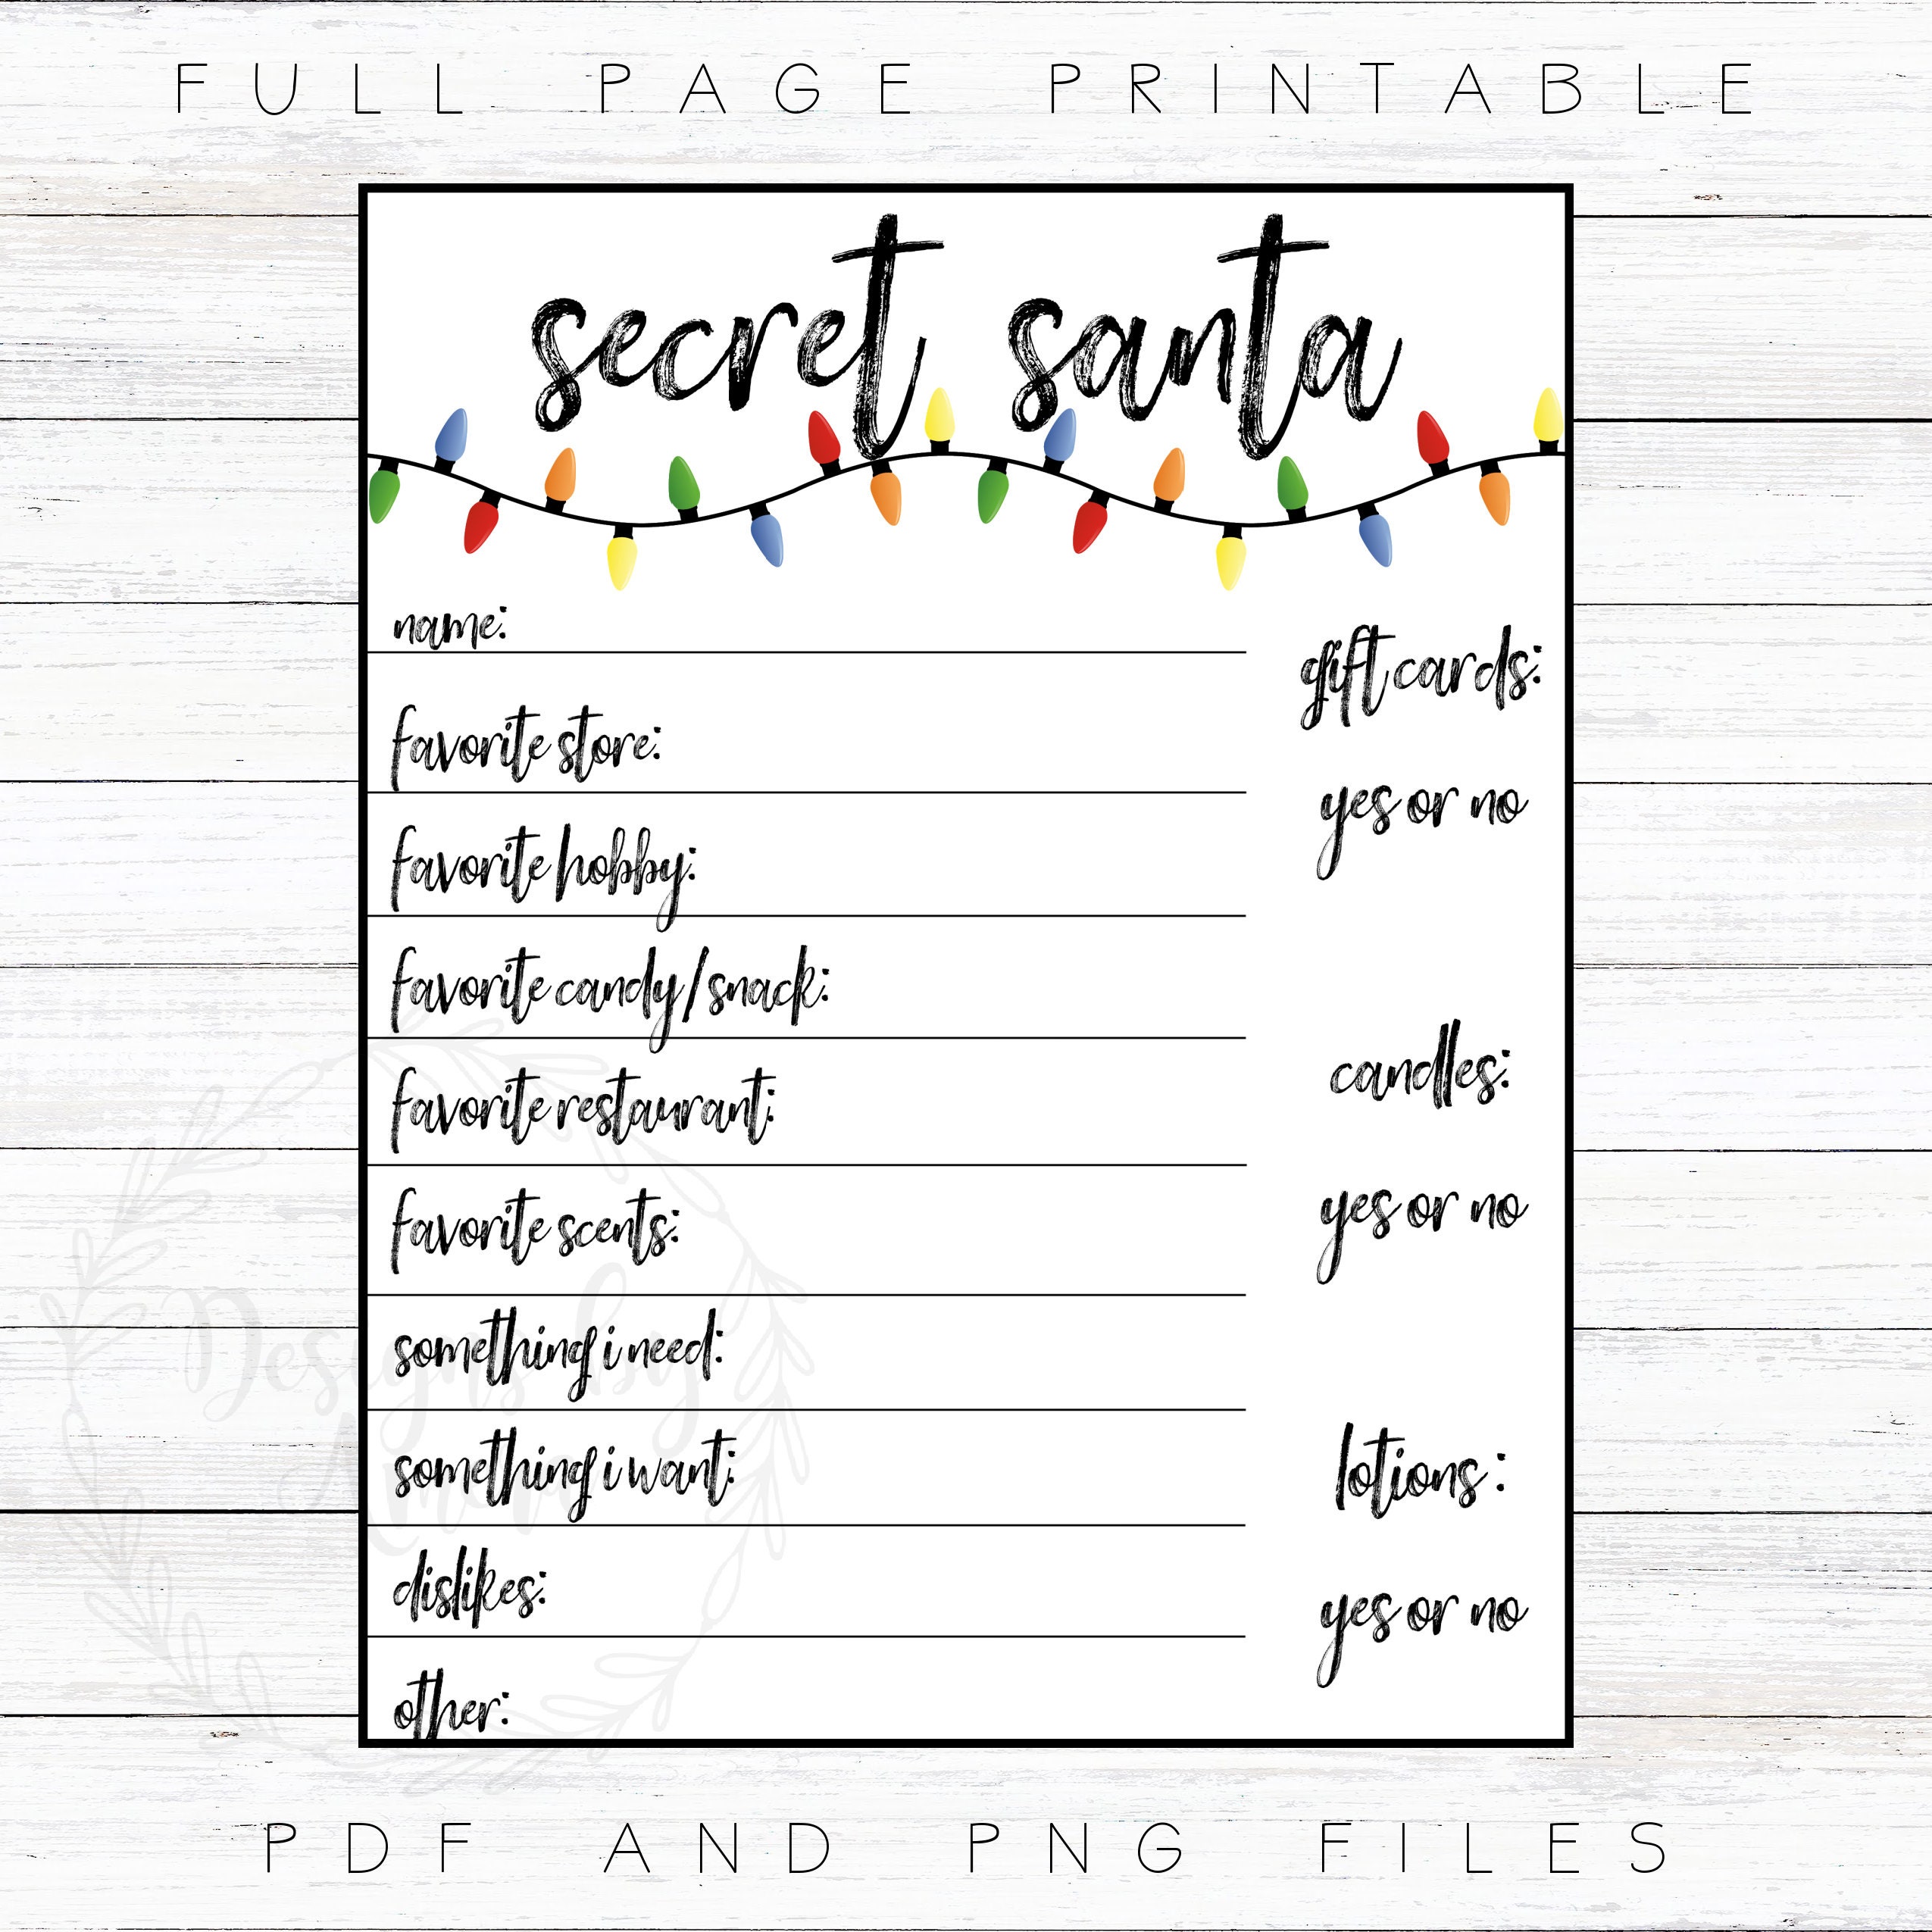 FULL PAGE PRINTABLE
secret santa
name:
favorite store:
favorite hobby:
favorite candy/snack:
favorite restaurant:
favorite scents:
something i need:
something i want:
dislikes:
other:
gift cards:
yes or no
candles:
yes or no
lotions :
yes or no
Designs by
PDF AND PNG FILES